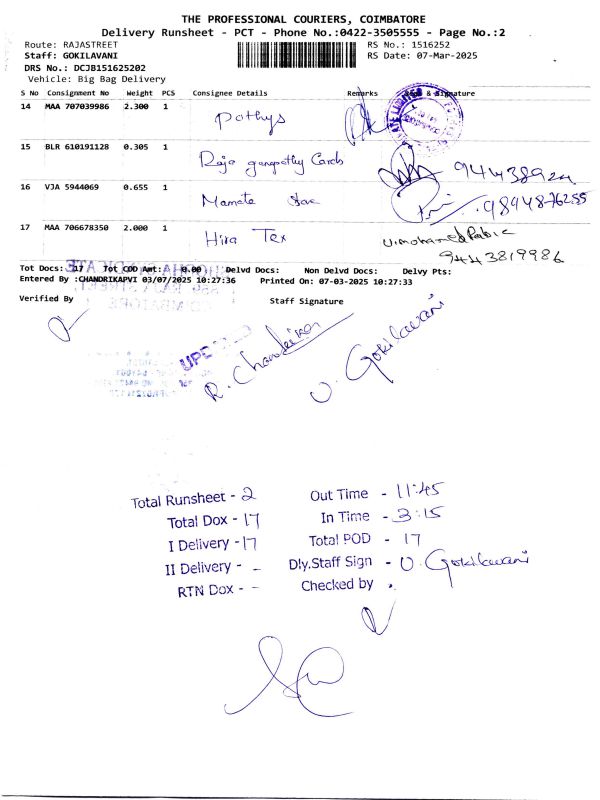 THE PROFESSIONAL COURIERS, COIMBATORE
Delivery Runsheet - PCT - Phone No.:0422-3505555 - Page No.:2
Route: RAJASTREET RS No.: 1516252
Staff: GOKILAVANI RS Date: 07-Mar-2025
DRS No.: DCJB151625202
Vehicle: Big Bag Delivery
S No Consignment No Weight PCS Consignee Details Remarks & Signature
14 MAA 707039986 2.300 1 Pothys
15 BLR 610191128 0.305 1 Raja ganapathy Cards
16 VJA 5944069 0.655 1 Mamata 98948-76255
17 MAA 706678350 2.000 1 Hira Tex
9443819986
Tot Docs: 17 Tot COD Amt: 0.00 Delvd Docs: Non Delvd Docs: Delvy Pts:
Entered By :CHANDRIKAPVI 03/07/2025 10:27:36 Printed On: 07-03-2025 10:27:33
Verified By Staff Signature
R. Chandrika U. Gokilavani
Total Runsheet - 2 Out Time - 11:45
Total Dox - 17 In Time - 3:15
I Delivery - 17 Total POD - 17
II Delivery - - Dly.Staff Sign - U. Gokilavani
RTN Dox - - Checked by